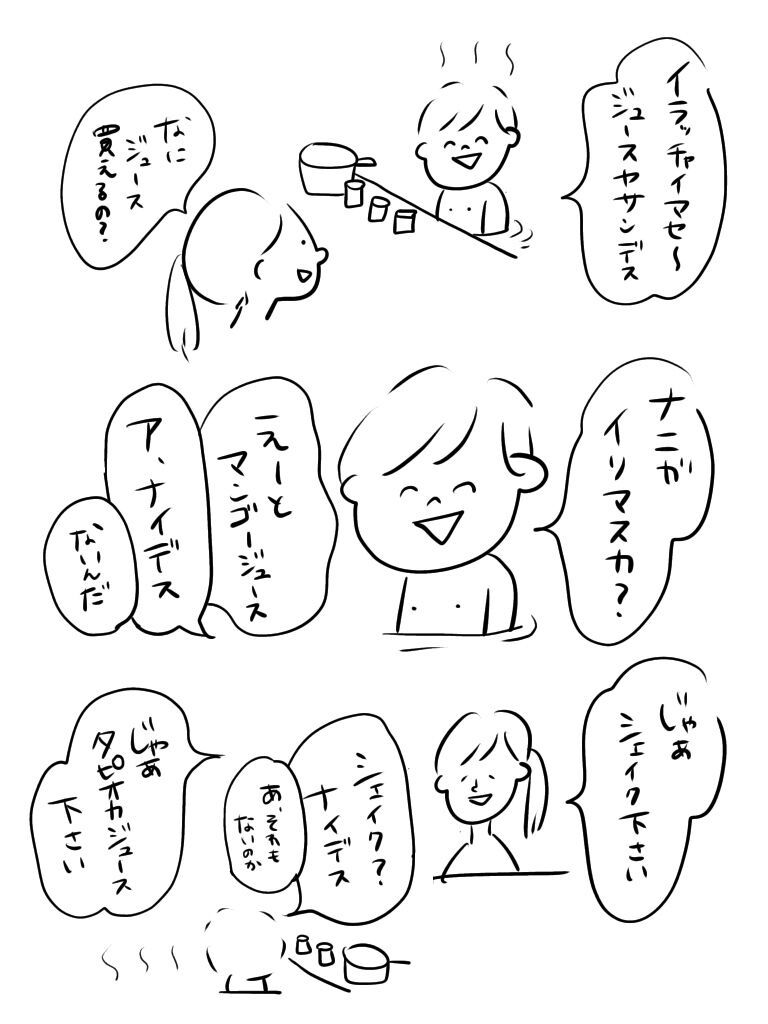 イラッチャイマセ〜
ジュースヤサンデス
なに
ジュース
買えるの?
ナニガ
イリマスカ?
えーと
マンゴージュース
ア、ナイデス
ないんだ
じゃあ
シェイク下さい
シェイク?
ナイデス
あ、それも
ないのか
じゃあ
タピオカジュース
下さい